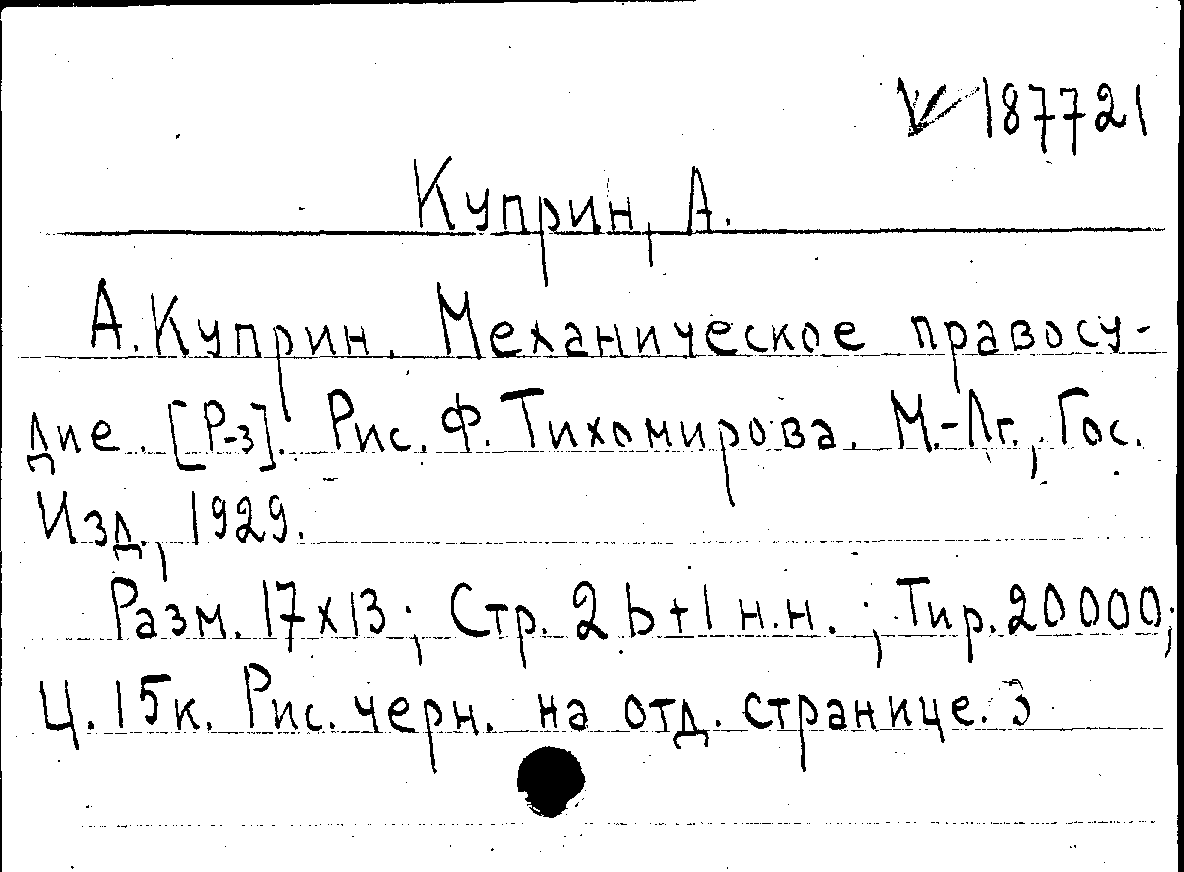 187721
Куприн, А.
А. Куприн. Механическое правосу-
дие. [Р-з]. Рис. Ф. Тихомирова. М.-Лг., Гос.
Изд., 1929.
Разм. 17х13; Стр. 26+1 н.н.; Тир. 20000;
Ц. 15к. Рис. черн. на отд. странице. 3